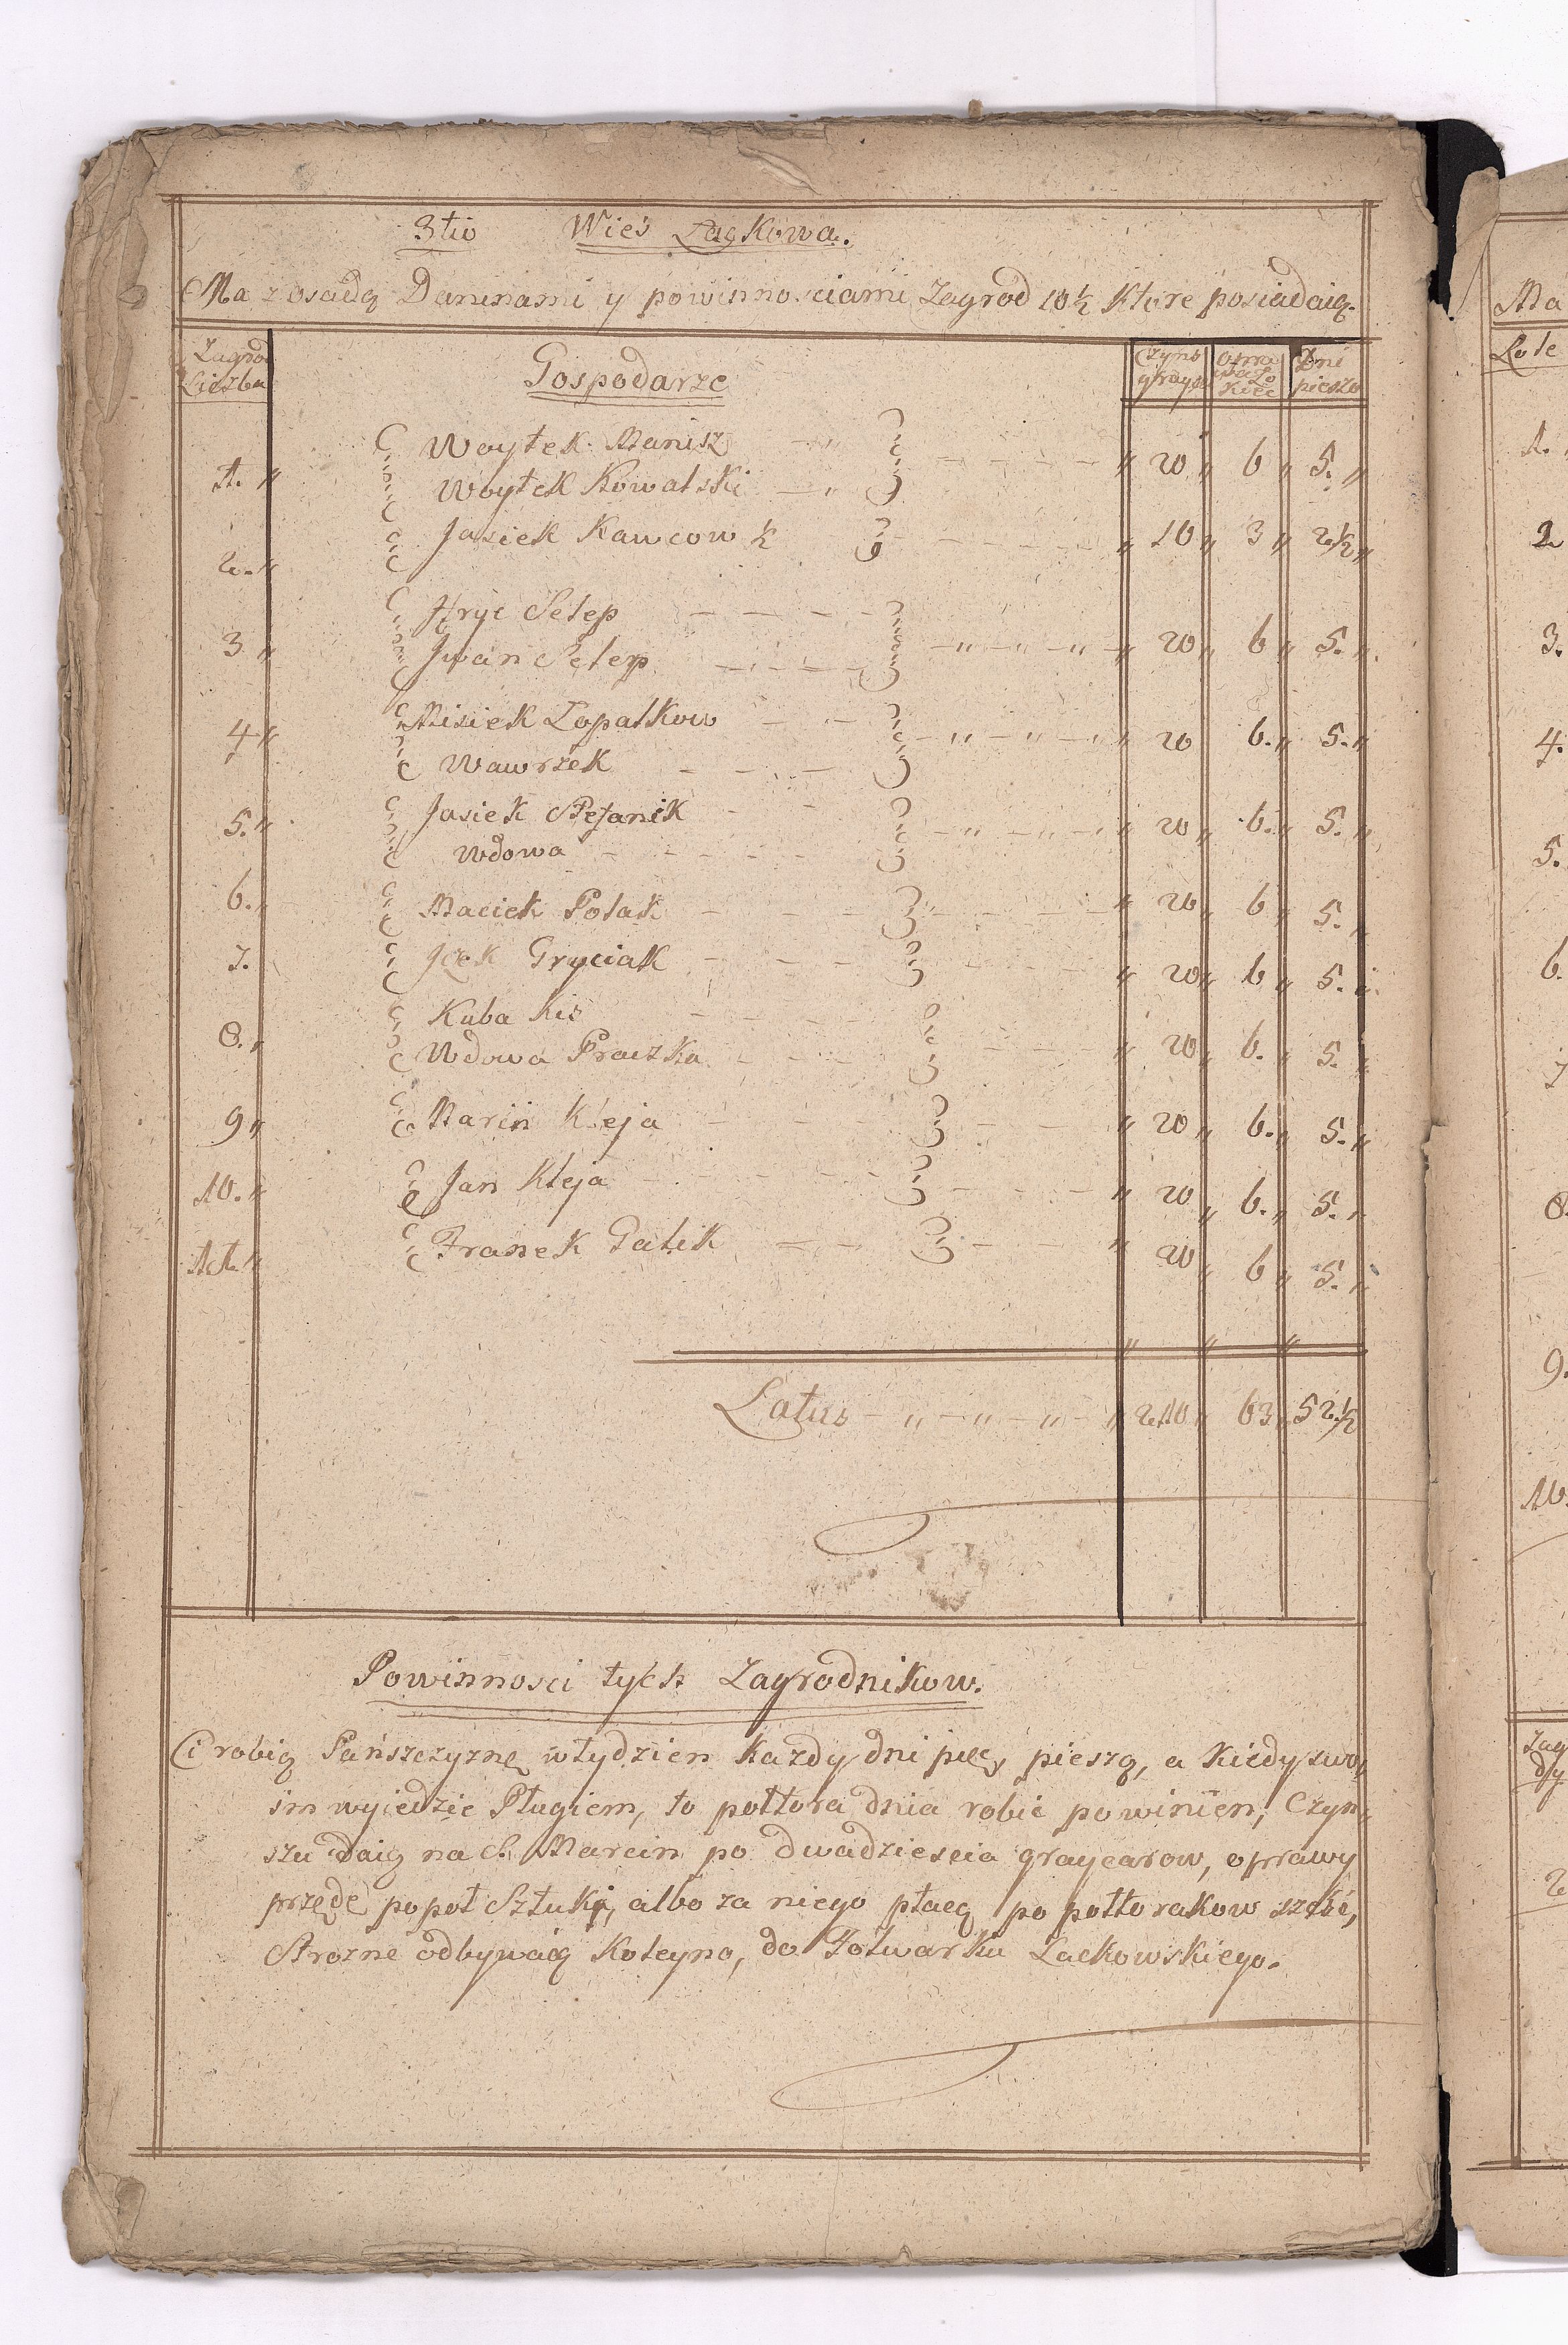 3tio Wieś Łackowa.
Ma z osadą Daninami y powinnosciami Zagrod 10½ Ktore posiadaią.
Zagrod Liczba
Gospodarze
Czyns grayc
Oprawa Łokiec
Dni piesze
Woytek Stanisz
1. Woytek Kowalski 20 6 5.
2. Jasiek Kawcow ½ 10 3 2½
Hryc Setep
3 Jwan Setep 20 6 5.
Misiek Łopatkow
4 Wawrzek 20 6. 5.
Jasiek Stefanik
5. Wdowa 20 6. 5.
6. Maciek Polak 20 6 5.
7. Jzek Gryciak 20 6 5.
Kuba Kis
8. Wdowa Praczka 20 6. 5.
9 Marin Kleja 20 6. 5.
10. Jan Kleja 20 6. 5.
11. Franek Galik 20 6 5.
Latus 210 63 52½
Powinnosci tych Zagrodnikow.
Ci robią Pańszczyznę wtydzien Kazdy dni pięc pieszą, a Kiedy swo,
im wyiedzie Pługiem, to połtora dnia robić powinien, Czyn,
szu daią na S. Marcin po dwadziescia graycarow, oprawy
przędę popoł Sztuki, albo za niego płacą po połtorakow sześć,
Strozne odbywaią Koleyno, do Folwarku Lackowskiego.
Ma
Lote
1.
2
3.
4.
5.
6.
7
8.
9.
10.
Zag